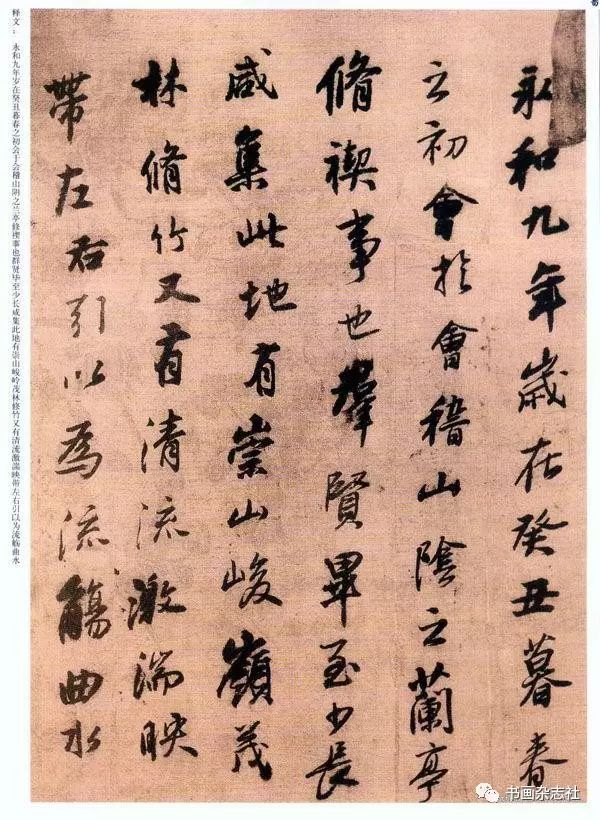 永和九年歲在癸丑暮春
之初會於會稽山陰之蘭亭
脩禊事也羣賢畢至少長
咸集此地有崇山峻嶺茂
林脩竹又有清流激湍映
帶左右引以為流觴曲水
释文：永和九年岁在癸丑暮春之初会于会稽山阴之兰亭修禊事也群贤毕至少长咸集此地有崇山峻岭茂林修竹又有清流激湍映带左右引以为流觞曲水
书画杂志社